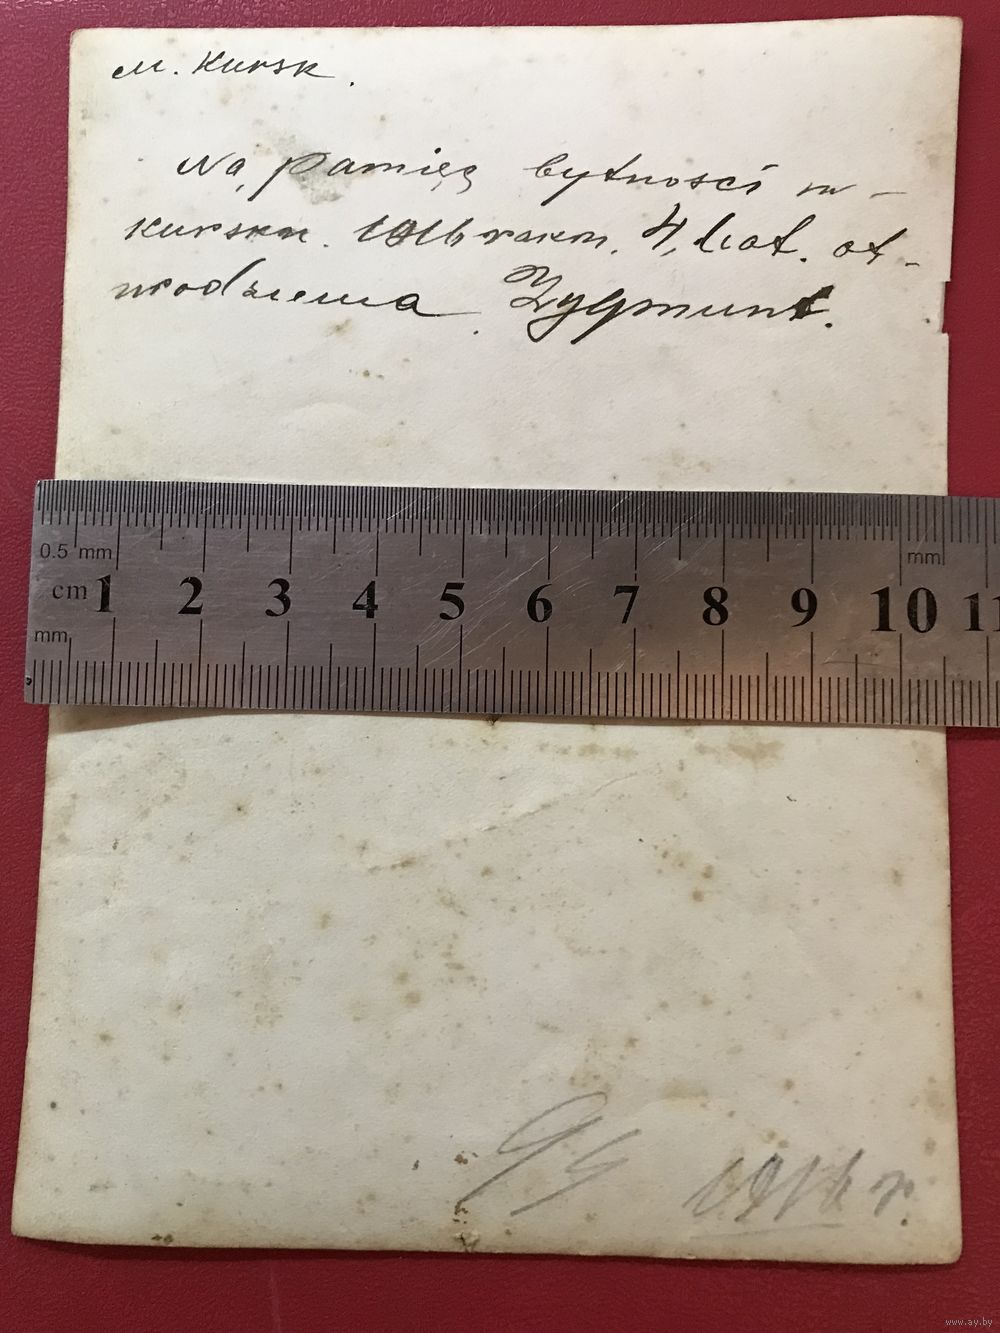 м. Kursk.
Na pamięę bytnosci w-
kursku. 1916 rokm. 4, lat. ot-
urodzenia. Zygmunt.
0.5 mm
mm
cm 1 2 3 4 5 6 7 8 9 10 11
mm
94 1916 r.
www.ay.by